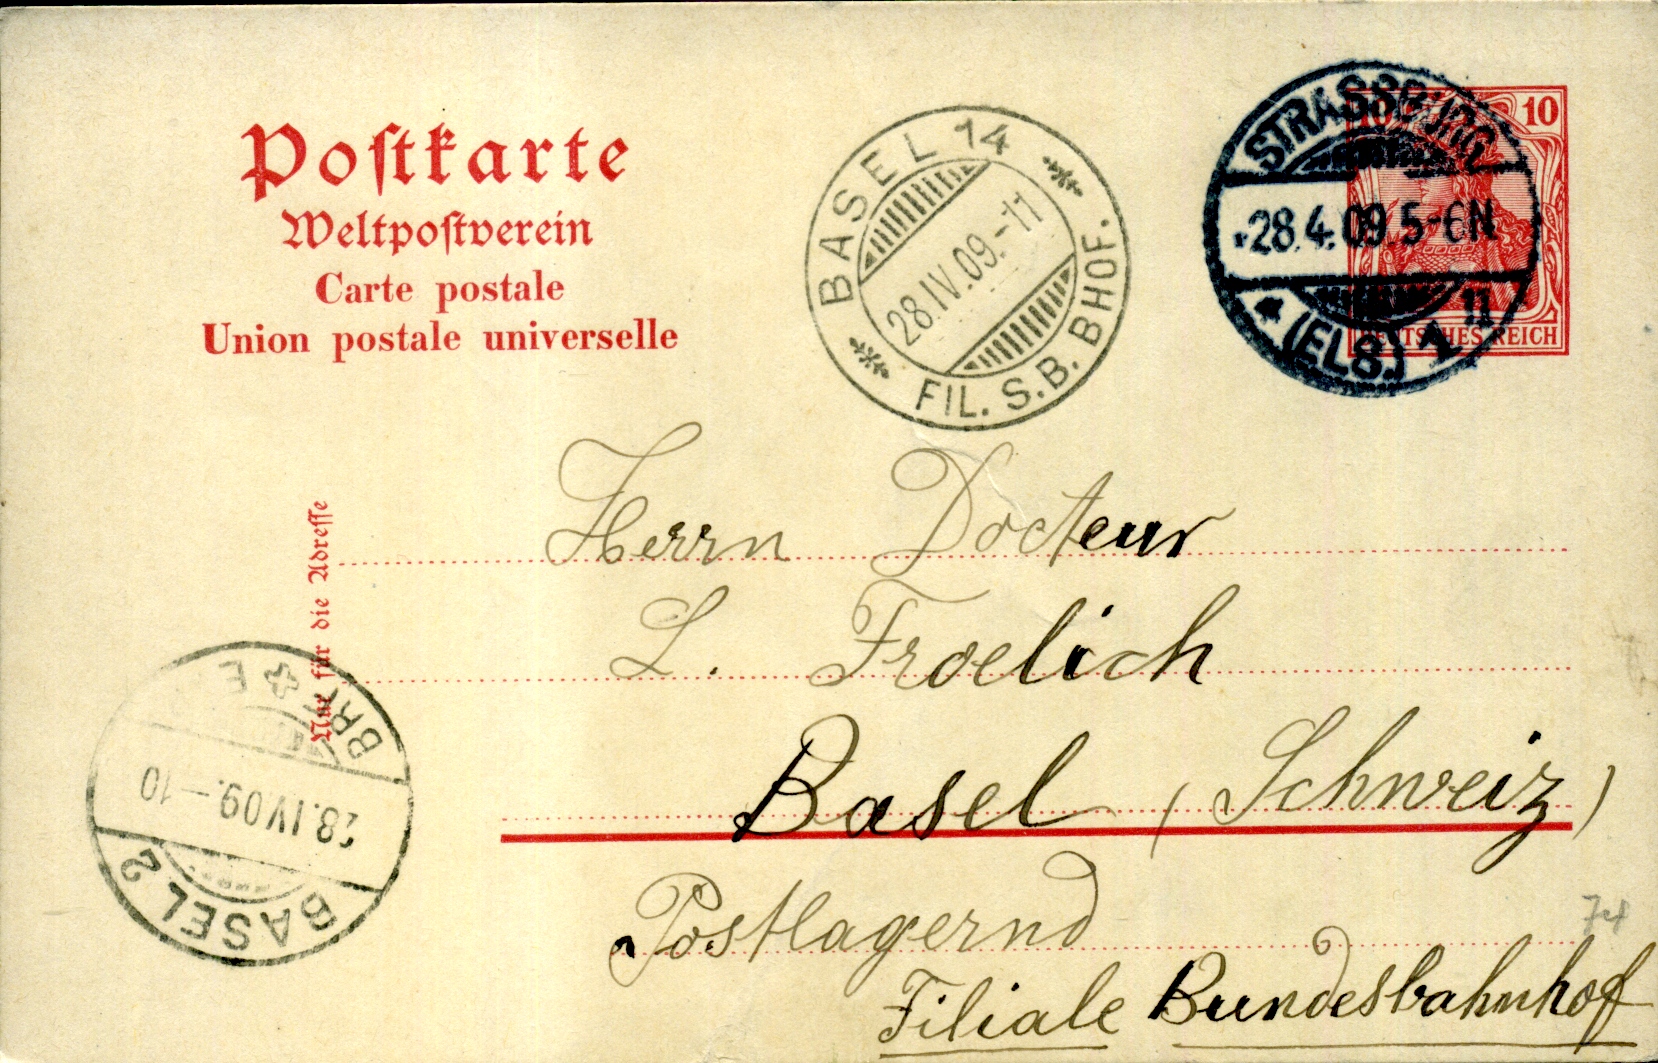 Postkarte
Weltpostverein
Carte postale
Union postale universelle
BASEL 14
28.IV.09.-11
FIL. S.B. BHOF.
10 10
STRASSBURG
*28.4.09.5-6N
* (ELS.) 1 11
DEUTSCHES REICH
Nur für die Adresse
Herrn Docteur
L. Froelich
Basel (Schweiz)
Postlagernd
Filiale Bundesbahnhof
74
BRF E
28.IV09.-10
BASEL 2